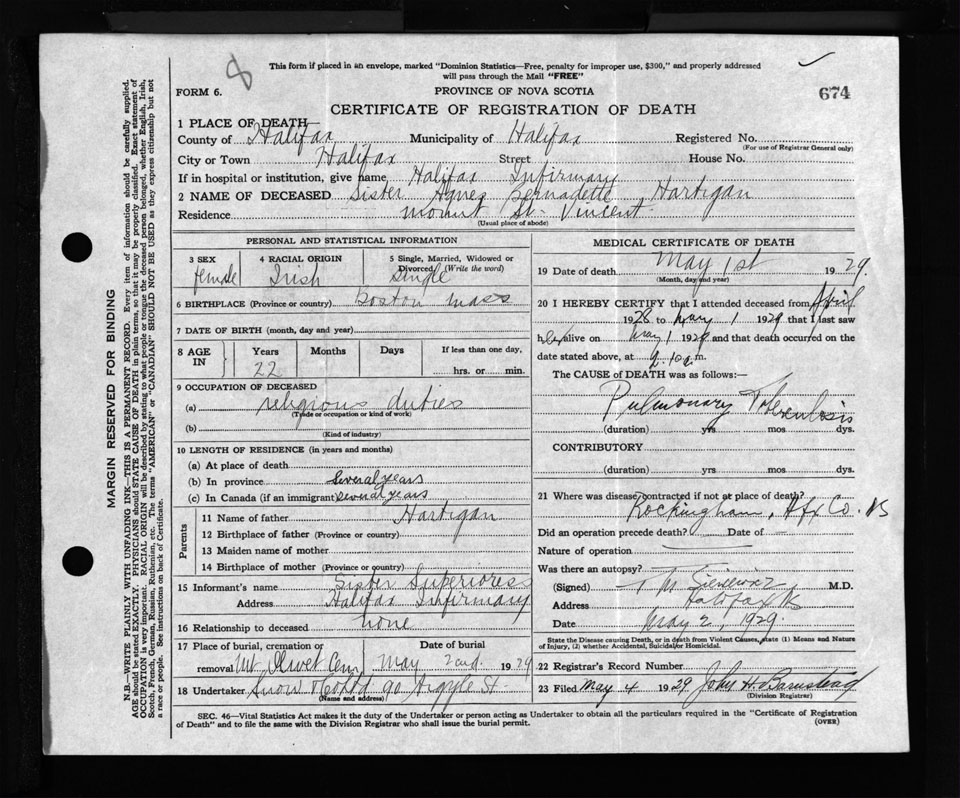 8
This form if placed in an envelope, marked "Dominion Statistics—Free, penalty for improper use, $300," and properly addressed
will pass through the Mail "FREE"
FORM 6.
PROVINCE OF NOVA SCOTIA
674
CERTIFICATE OF REGISTRATION OF DEATH
1 PLACE OF DEATH
County of Halifax Municipality of Halifax Registered No.
(For use of Registrar General only)
City or Town Halifax Street House No.
If in hospital or institution, give name Halifax Infirmary
2 NAME OF DECEASED Sister Agnes Bernadette Hartigan
Residence Mount St. Vincent
(Usual place of abode)
PERSONAL AND STATISTICAL INFORMATION
3 SEX 4 RACIAL ORIGIN 5 Single, Married, Widowed or
Divorced (Write the word)
female Irish Single
6 BIRTHPLACE (Province or country) Boston Mass
7 DATE OF BIRTH (month, day and year)
8 AGE IN Years Months Days If less than one day,
22 hrs. or min.
9 OCCUPATION OF DECEASED
(a) religious duties
(Trade or occupation or kind of work)
(b)
(Kind of industry)
10 LENGTH OF RESIDENCE (in years and months)
(a) At place of death
(b) In province Several years
(c) In Canada (if an immigrant) several years
Parents
11 Name of father Hartigan
12 Birthplace of father (Province or country)
13 Maiden name of mother
14 Birthplace of mother (Province or country)
15 Informant's name Sister Superioress
Address Halifax Infirmary
16 Relationship to deceased none
17 Place of burial, cremation or Date of burial
removal Mt Olivet Cem May 2nd 1929
18 Undertaker Snow & Co Ltd 90 Argyle St
(Name and address)
MEDICAL CERTIFICATE OF DEATH
19 Date of death May 1st 1929.
(Month, day and year)
20 I HEREBY CERTIFY that I attended deceased from April
1928 to May 1 1929 that I last saw
her alive on May 1 1929 and that death occurred on the
date stated above, at m.
The CAUSE of DEATH was as follows:—
Pulmonary Tuberculosis
(duration) yrs mos dys.
CONTRIBUTORY
(duration) yrs mos dys.
21 Where was disease contracted if not at place of death?
Rockingham, Hfx Co. NS
Did an operation precede death? Date of
Nature of operation
Was there an autopsy?
(Signed) T M M.D.
Address Halifax NS
Date May 2, 1929.
State the Disease causing Death, or in death from Violent Causes, state (1) Means and Nature
of Injury, (2) whether Accidental, Suicidal or Homicidal.
22 Registrar's Record Number
23 Filed May 4 1929 John H Barnstead
(Division Registrar)
SEC. 46—Vital Statistics Act makes it the duty of the Undertaker or person acting as Undertaker to obtain all the particulars required in the "Certificate of Registration
of Death" and to file the same with the Division Registrar who shall issue the burial permit.
(OVER)
MARGIN RESERVED FOR BINDING
N.B.—WRITE PLAINLY WITH UNFADING INK—THIS IS A PERMANENT RECORD. Every item of information should be carefully supplied.
AGE should be stated EXACTLY. PHYSICIANS should STATE CAUSE OF DEATH in plain terms, so that it may be properly classified. Exact statement of
OCCUPATION is very important. RACIAL ORIGIN will be described by stating to what people or tongue the deceased person belonged, whether English, Irish,
Scotch, French, German, Russian, Ruthenian, etc. The terms "AMERICAN" or "CANADIAN" SHOULD NOT BE USED as they express citizenship but not
a race or people. See instructions on back of Certificate.